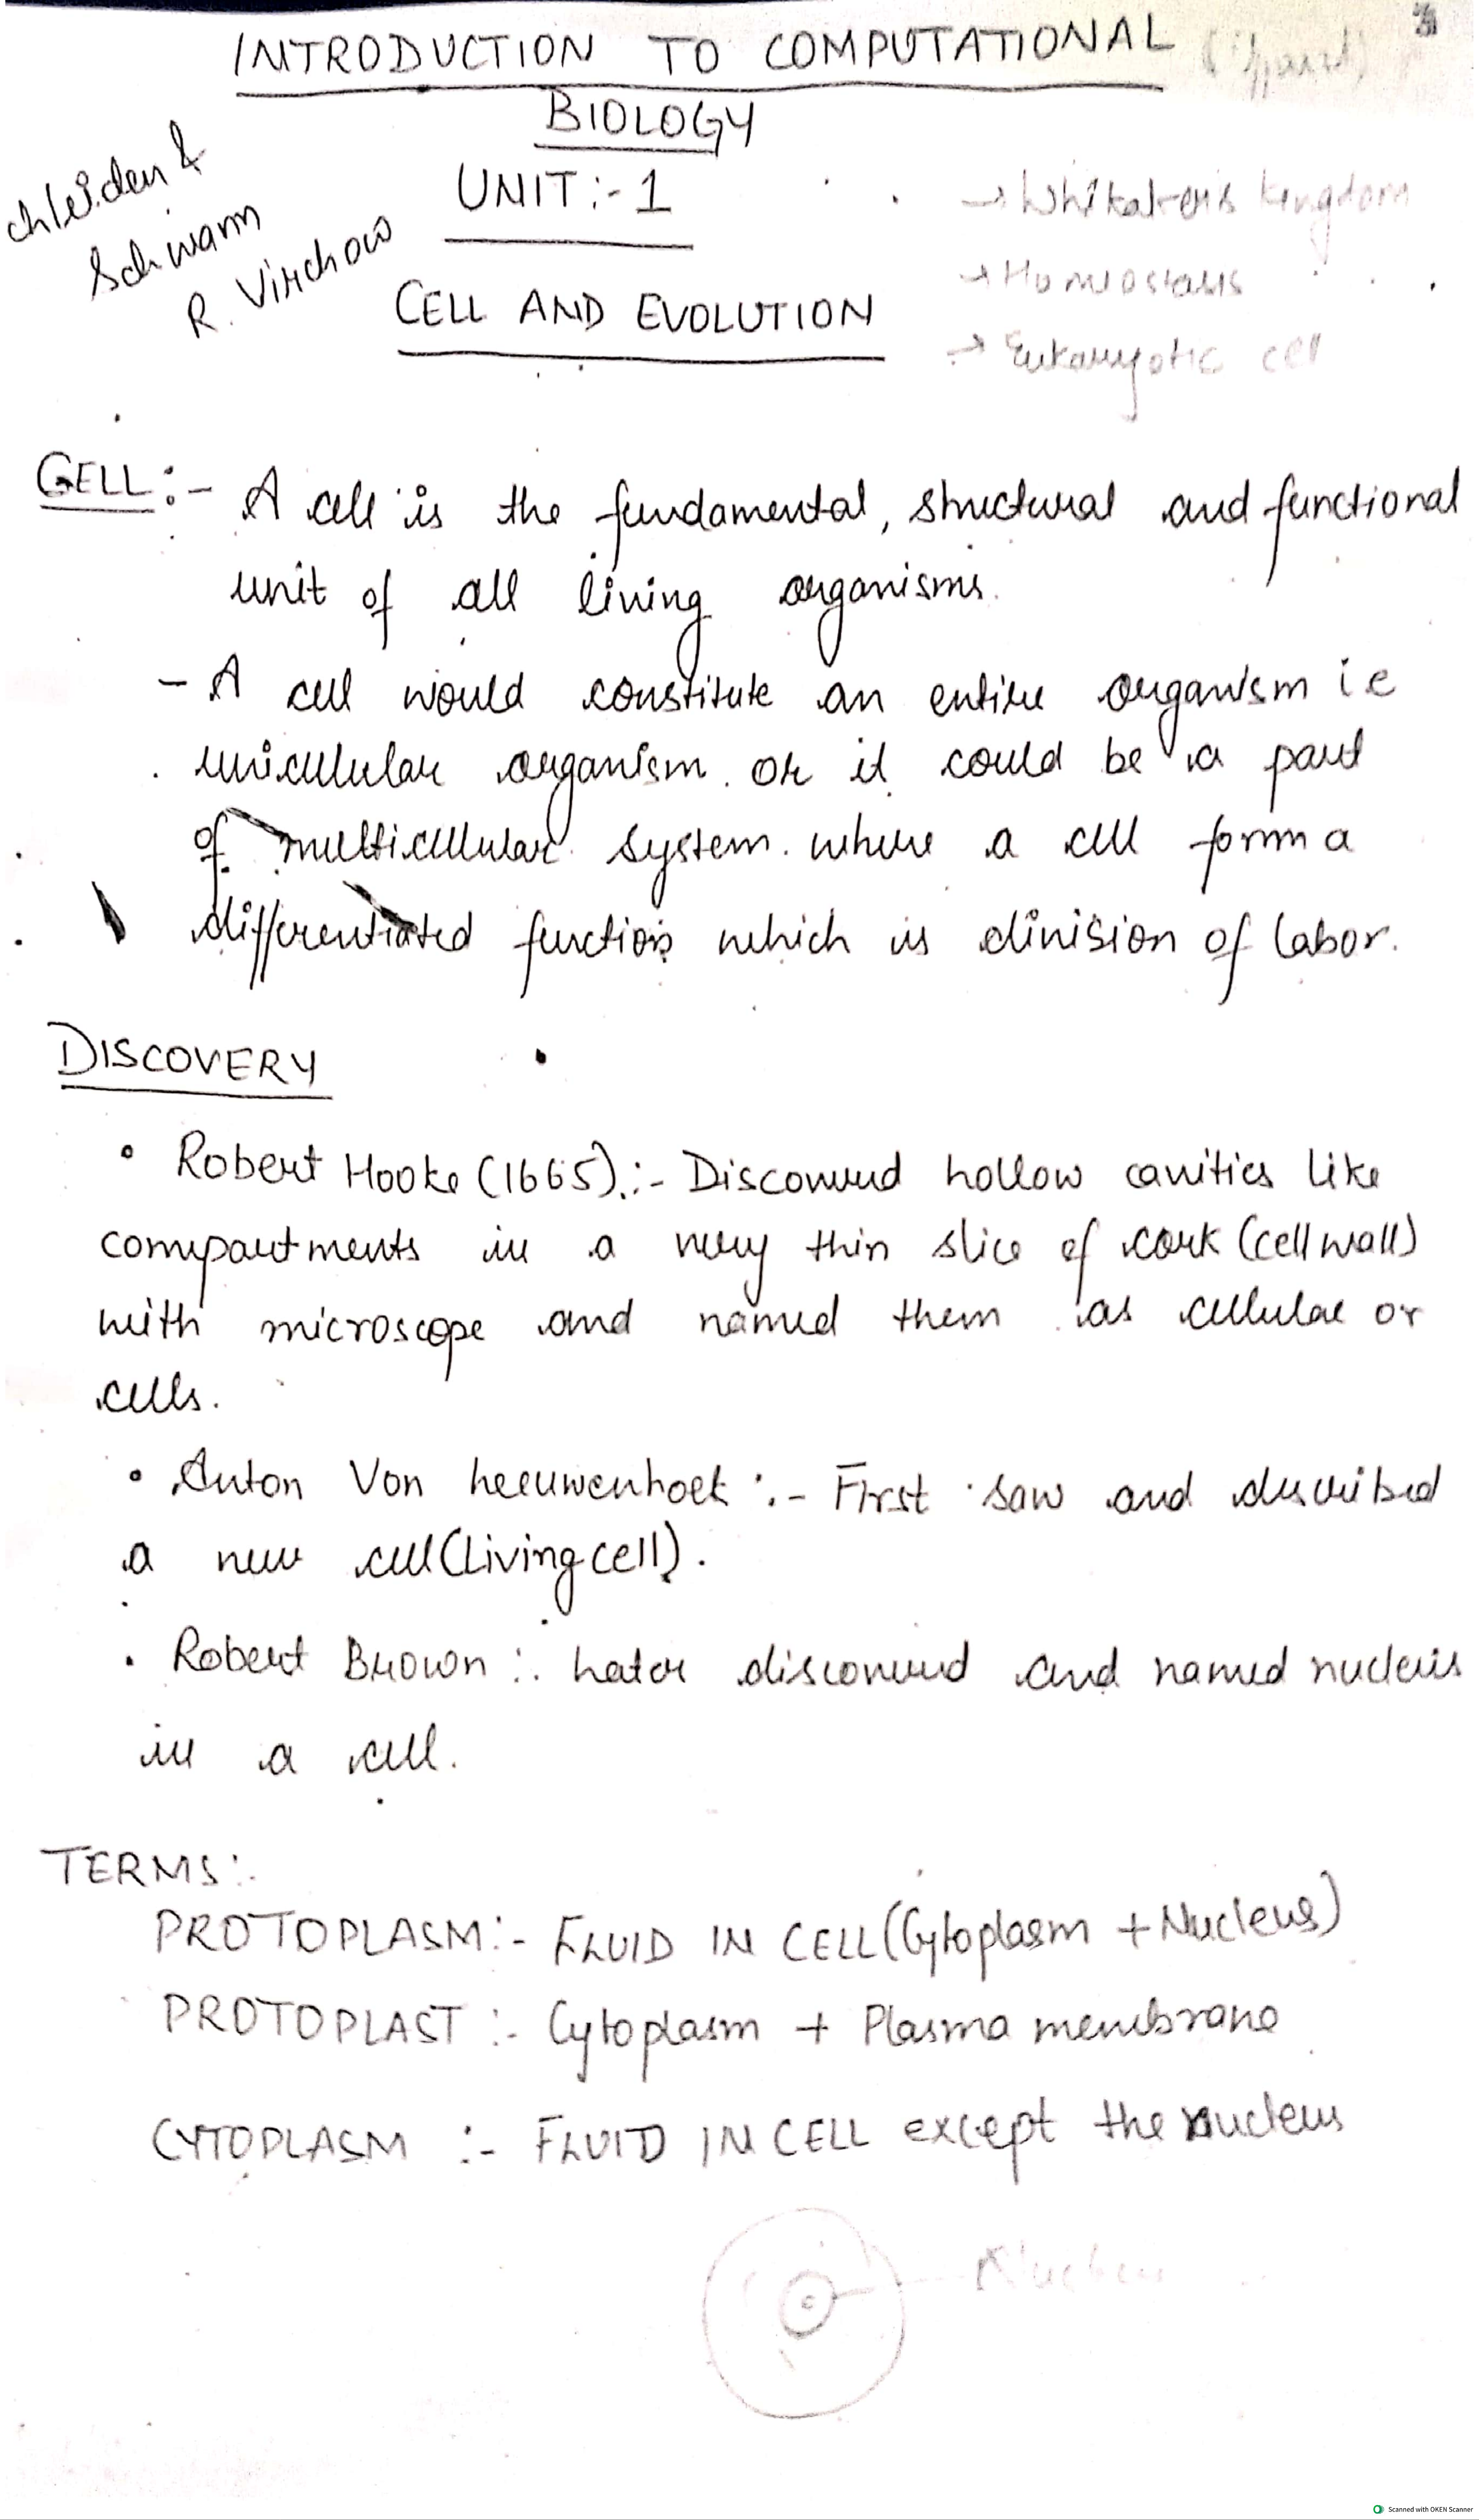 INTRODUCTION TO COMPUTATIONAL
BIOLOGY
chleiden &
Schwann
R. Virchow
UNIT:- 1
CELL AND EVOLUTION
→ Whitakeris kingdom
→ Homeostasis
→ Eukaryotic cell
CELL:- A cell is the fundamental, structural and functional
unit of all living organisms.
- A cell would constitute an entire organism i e
unicellular organism or it could be a part
of multicellular system where a cell form a
differentiated function which is division of labor.
DISCOVERY
• Robert Hooke (1665):- Discovered hollow cavities like
compartments in a very thin slice of cork (cell wall)
with microscope and named them as cellulae or
cells.
• Anton Von Leeuwenhoek :- First saw and described
a new cell (Living cell).
• Robert Brown :. Later discovered and named nucleus
in a cell.
TERMS:.
PROTOPLASM:- FLUID IN CELL (Cytoplasm + Nucleus)
PROTOPLAST :- Cytoplasm + Plasma membrane
CYTOPLASM :- FLUID IN CELL except the nucleus
Scanned with OKEN Scanner